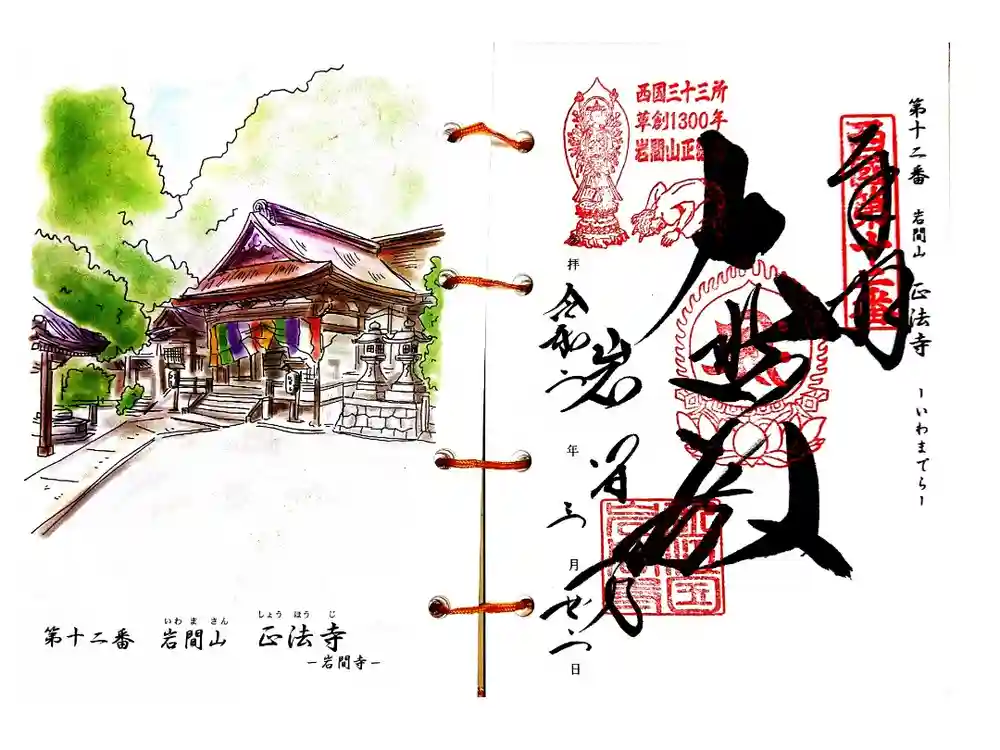 いわ ま さん しょう ほう じ
第十二番 岩間山 正法寺
−岩間寺−
第十二番 岩間山 正法寺 −いわまでら−
西国第十二番
西國三十三所
草創1300年
岩間山正
大悲殿
岩間寺
拝 令和二年三月廿二日